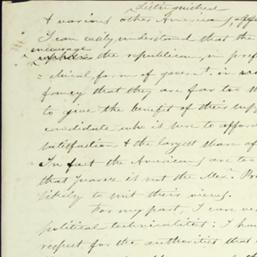 distinguished
& various other Americans, 
I can easily understand that the
encourage
the republican, in pref
=clined form of govern't. in
fancy that they are far too
to give the benefit of their sup
candidate who is sure to afford
satisfaction, & the largest share of
In fact the Americans are to
that Juarez is not the Mex. Pre
likely to suit their views.
For my part, I can
political technicalities; I ha
respect for the authorities that